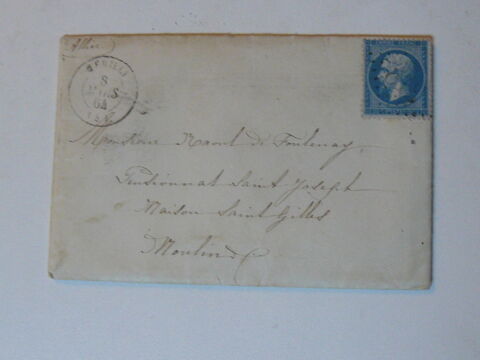 (Allier)
8
MARS
64
EMPIRE FRANC
Monsieur Raoul de Fontenay
Pensionnat Saint Joseph
Maison Saint Gilles
Moulins